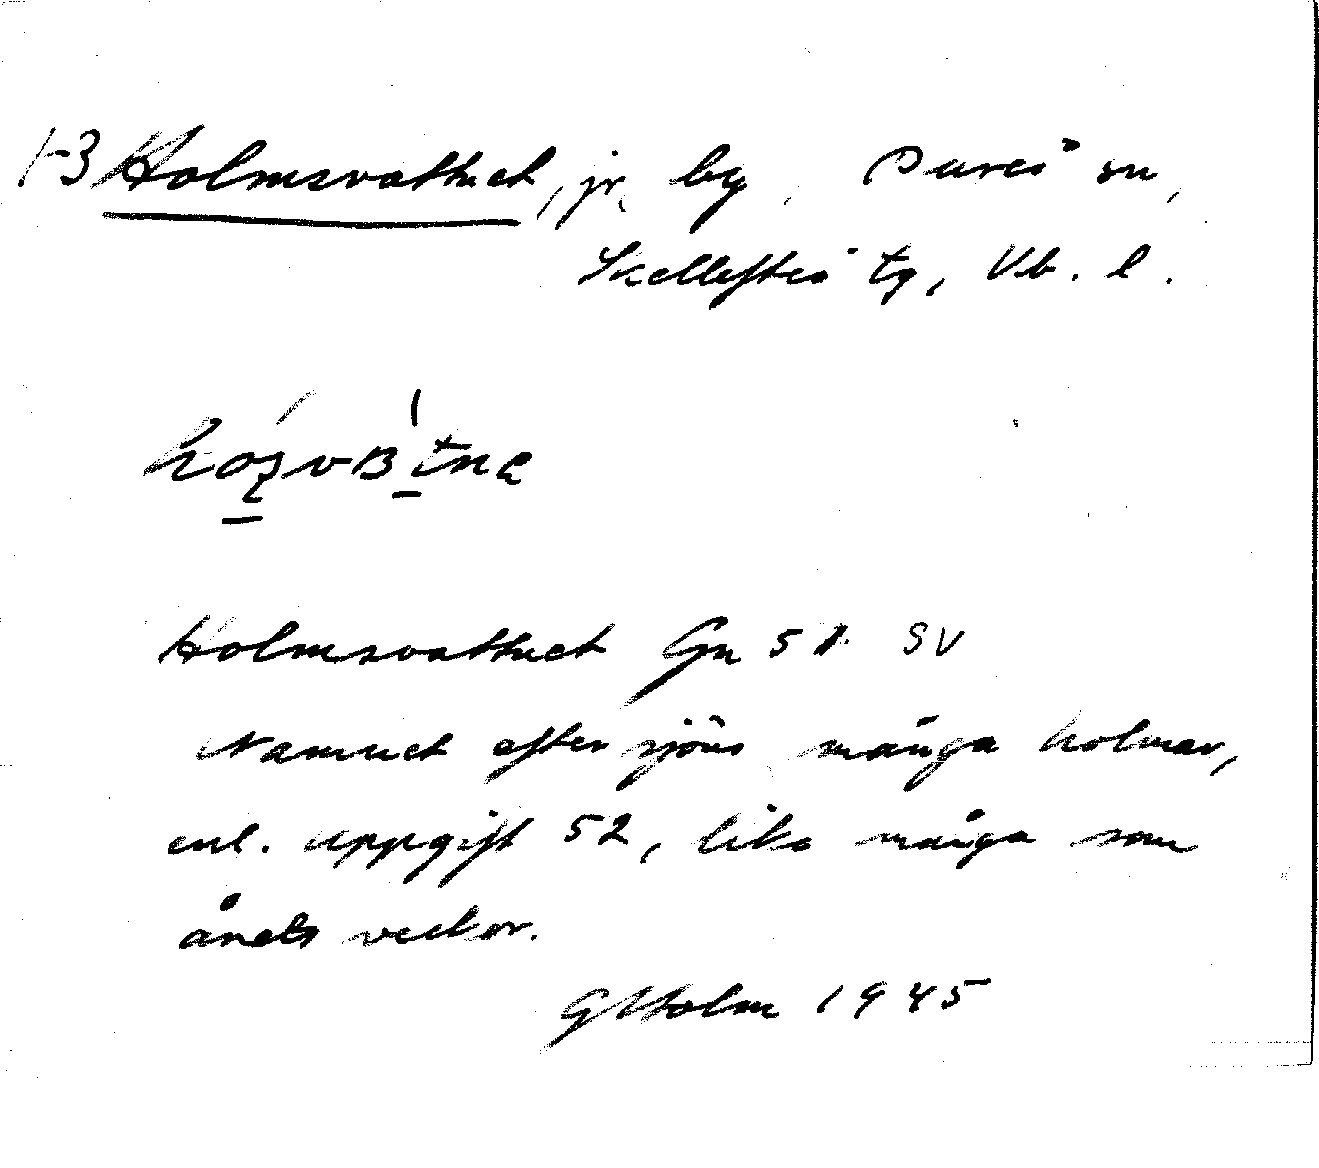 1-3 Holmsvattnet, jr, by, Bureå sn,
Skellefteå tg, Vb. l.
Holmsvattnet Gn 51 SV
Namnet efter sjöns många holmar,
enl. uppgift 52, lika många som
årets veckor.
G Holm 1945